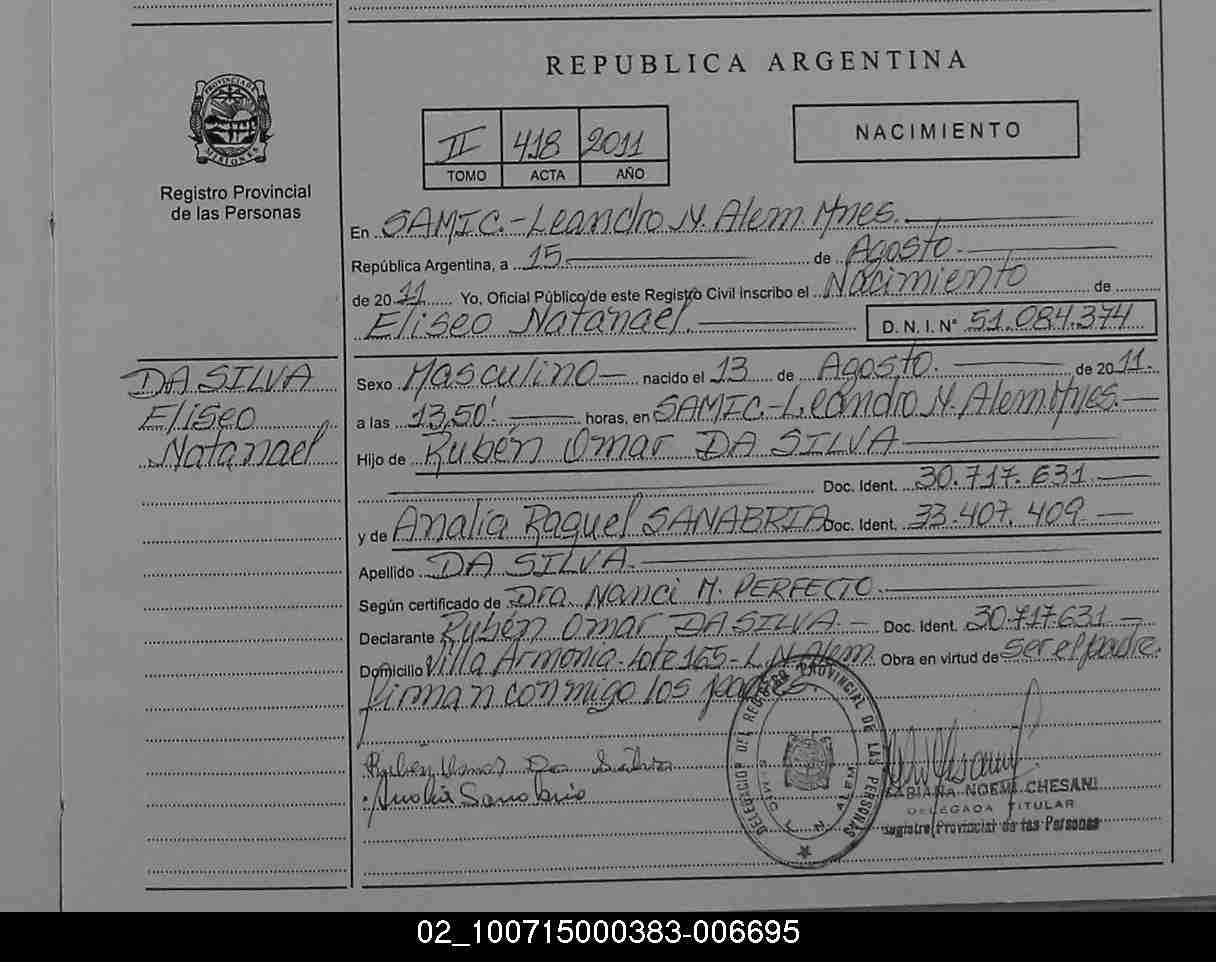 REPUBLICA ARGENTINA
PROVINCIA DE MISIONES
Registro Provincial
de las Personas
II 418 2011
TOMO ACTA AÑO
NACIMIENTO
En SAMIC.-Leandro N. Alem Mnes.
República Argentina, a 15 de Agosto
de 2011 Yo, Oficial Público de este Registro Civil inscribo el Nacimiento de
Eliseo Natanael. D. N. I. N° 51.084.374
DA SILVA
Eliseo
Natanael
Sexo Masculino nacido el 13 de Agosto. de 2011.
a las 13,50' horas, en SAMIC.-Leandro N. Alem Mnes.
Hijo de Rubén Omar DA SILVA
Doc. Ident. 30.717.631.
y de Analia Raquel SANABRIA Doc. Ident. 33.407.409
Apellido DA SILVA.
Según certificado de Dra. Nanci M. PERFECTO.
Declarante Rubén Omar DA SILVA. Doc. Ident. 30.717.631
Domicilio Villa Armonia-lote 165-L.N.Alem Obra en virtud de ser el padre.
firman conmigo los padres.
Rubén Omar Da Silva
Analia Sanabria
DELEGACION DEL REGISTRO PROVINCIAL DE LAS PERSONAS
SAMIC L N ALEM
FABIANA NOEMI CHESANI
DELEGADA TITULAR
Registro Provincial de las Personas
02_100715000383-006695